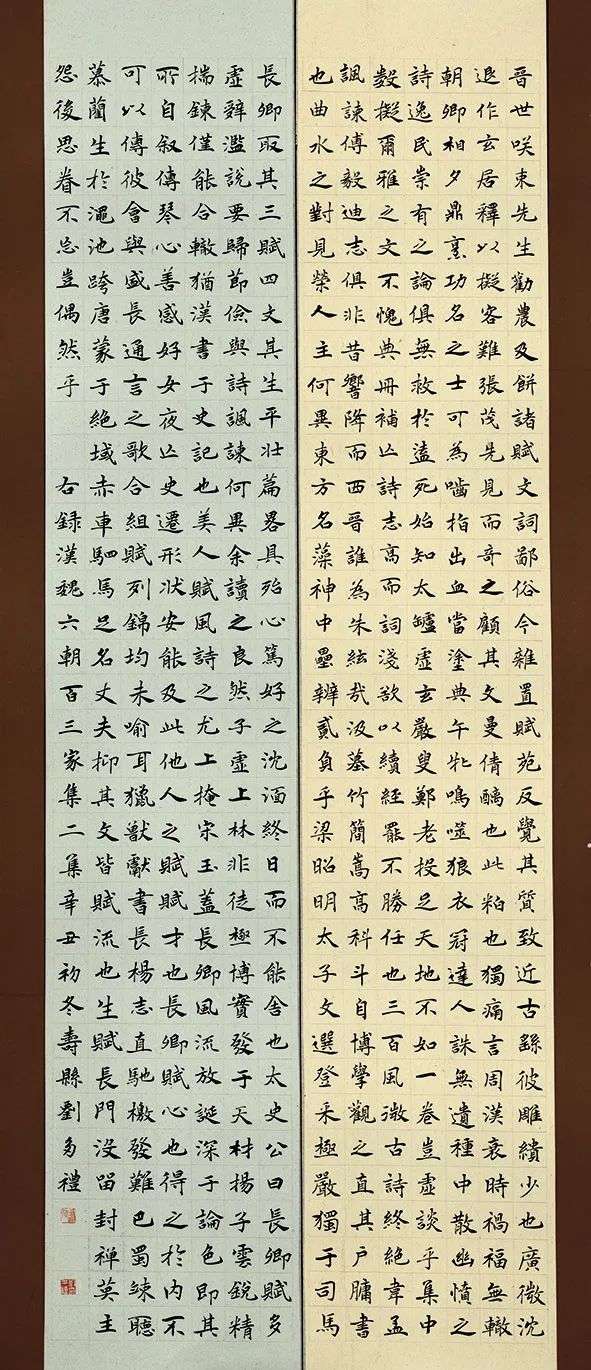 晉世咲束先生勸農及餅諸賦文詞鄙俗今雜置賦苑反覺其質致近古繇彼雕繢少也廣微沈
退作玄居釋以擬客難張茂先見而奇之顧其文曼倩釃也此粕也獨痛言周漢衰時禍福無轍
朝卿相夕鼎烹功名之士可為嚙指出血當塗典午牝鳴噬狼衣冠達人誅無遺種中散幽憤之
詩逸民崇有之論俱無救於溘死始知太罏虛玄嚴叟鄭老投足天地不如一卷豈虛談乎集中
數擬爾雅之文不愧典冊補亡詩志高而詞淺欲以續經罷不勝任也三百風微古詩終絕韋孟
諷諫傅毅迪志俱非昔響降而西晉誰為朱絃哉汲墓竹簡嵩高科斗自博學觀之直其戶牖書
也曲水之對見榮人主何異東方名藻神中壘辨貳負乎梁昭明太子文選登采極嚴獨于司馬
長卿取其三賦四文其生平壯篇畧具殆心篤好之沈湎終日而不能舍也太史公曰長卿賦多
虛辭濫說要歸節儉與詩諷諫何異余讀之良然子虛上林非徒極博實發于天材揚子雲銳精
揣鍊僅能合轍猶漢書于史記也美人賦風詩之尤上掩宋玉蓋長卿風流放誕深于論色即其
所自叙傳琴心善感好女夜亡史遷形狀安能及此他人之賦賦才也長卿賦心也得之於內不
可以傳彼會與盛長通言之歌合組賦列錦均未喻耳獵獸獻書長楊志直馳檄發難巴蜀竦聽
慕藺生於澠池跨唐蒙于絕域赤車駟馬足名丈夫抑其文皆賦流也生賦長門沒留封禪英主
怨後思眷不忘豈偶然乎 右錄漢魏六朝百三家集二集辛丑初冬壽縣劉多禮